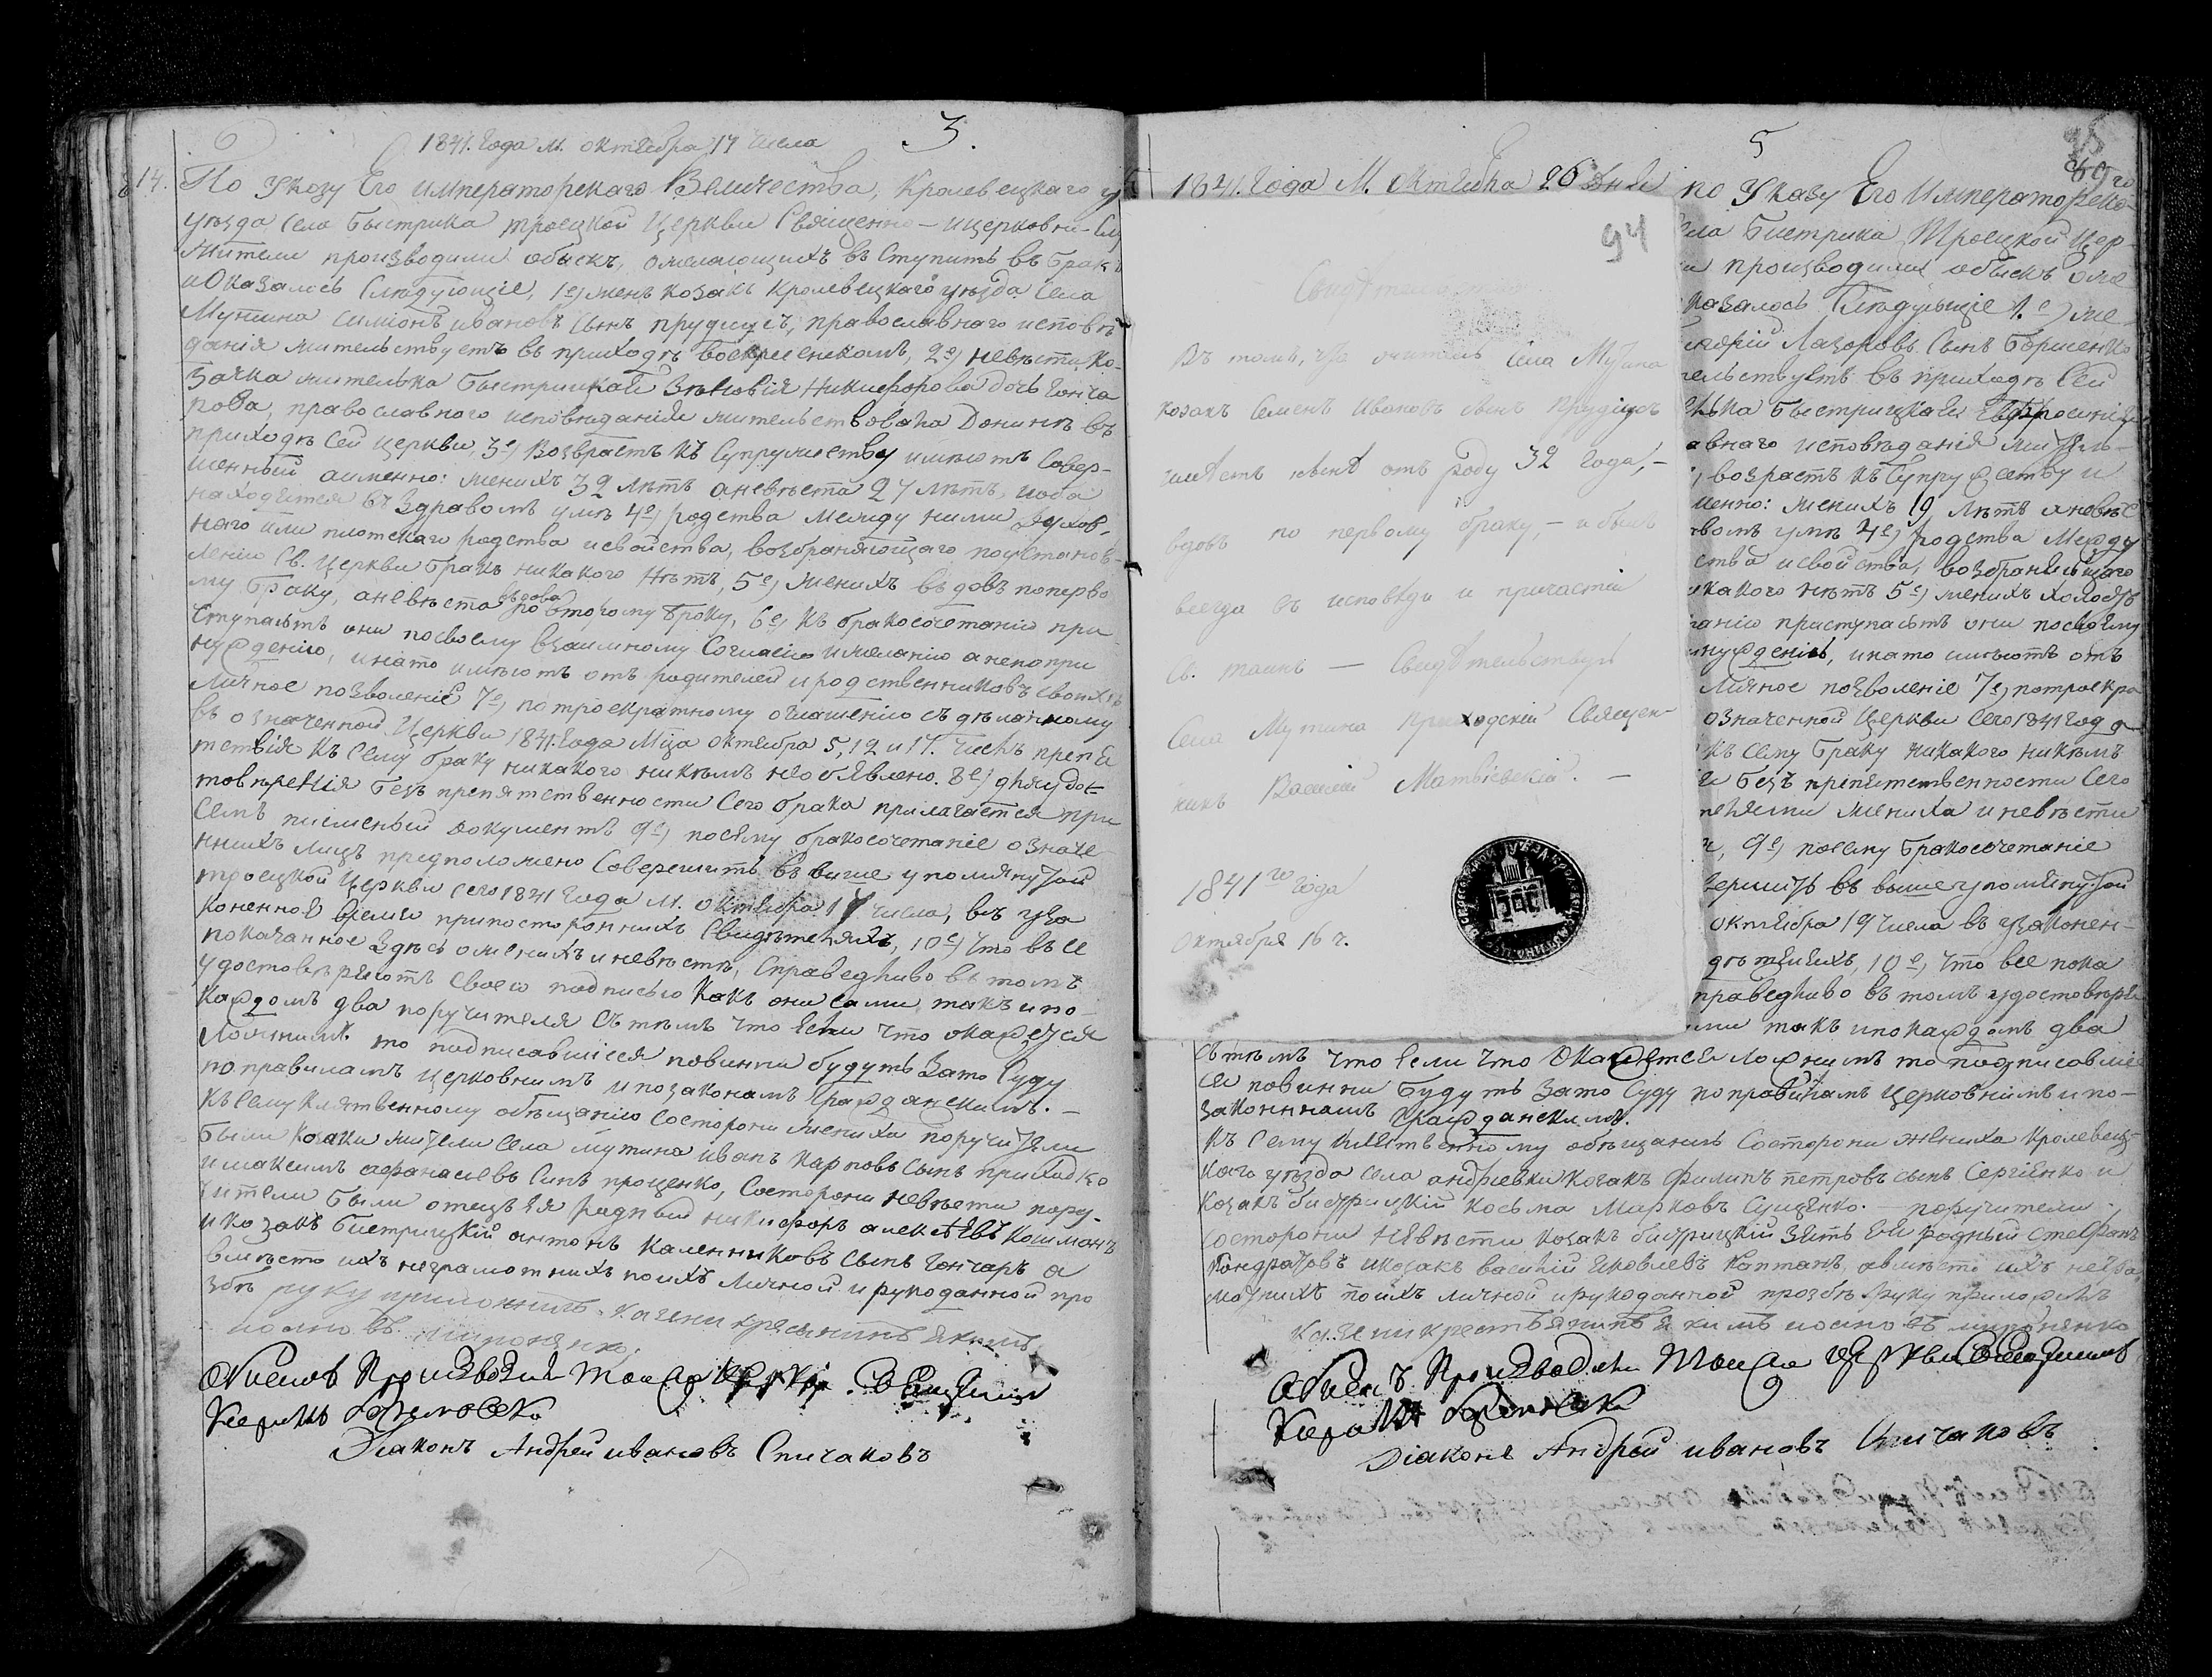 1841. Года М. октября 17 числа 3.
14. По Указу Его Императорскаго Величества, Кролевецкаго
уезда села Быстрика троецкой Церкви Священно - ицерковно-слу
жители производили обыскъ, ожелающихъ въступить въ бракъ
иОказалось Следующіе, 1е) женихъ козакъ Кролевецкаго уѣзда Села
Мутина симіонъ ивановъ Сынъ прудиусъ, православнаго исповѣ
данія жительствуетъ въ приходѣ воскресенскомъ, 2е) невѣста, ко-
зачка жителька быстрицкая Зѣновія Никифорова дочь гонча
рова, православного исповѣданія жительствовала Донинѣ въ
приходѣ сей церкви, 3е) Возврастъ къ Супружеству имѣютъ Совер-
шенный аименно: женихъ 32 лѣтъ аневѣста 27 лѣтъ, иоба
находятся въ Здравомъ умѣ 4е) родства между ними духов-
наго или плотскаго родства исвойства, возбраняющаго поустанов-
ленію Св. Церкви бракъ никакого нѣтъ, 5е) женихъ въдовъ поперво
му браку, аневѣста вдова по второму браку, 6е) Къ бракосочетанію при
ступаютъ они посвоему взаимному Согласію ижеланію анепопри
нужденію, инато имѣютъ отъ родителей иродственниковъ своихъ
личное позволеніе 7е) потроекратному оглашенію сдѣланному
въ означенной Церкви 1841. Года Мца октября 5, 12 и 17. числъ препя
тствія къ сему браку никакого никѣмъ необявлено. 8е) для удос
товѣренія безъ препятственности Сего брака прилагается при
семъ писменный документъ 9е) посему бракосочетаніе означе
нныхъ лицъ предположено Совершить въ выше упомянутой
троецкой Церкви сего 1841 Года М. октября 17 числа, въ уза
коненное время припосторонних Свидѣтеляхъ, 10е) что въсе
показанное здѣсь оженихѣ иневѣстѣ, Справедливо въ томъ
удостовѣряютъ своею подписью какъ они сами такъ ипо-
каждомъ два поручителя Сътѣмъ что если что окажется
ложнимъ то подписавшіеся повинни будутъ Зато Суду
поправиламъ церковнимъ ипозаконамъ гражданскимъ. -
Къ сему клятвенному обѣщанію состорони жениха поручители
были козаки жители села мутина иванъ Карповъ сынъ приходко
имаксимъ афанасіевъ Синъ проценко, Состорони невѣсти пору-
чители были отецъ Ея родный никифоръ алексѣевъ кошманъ
икозакъ быстрицкій антонъ Каленниковъ сынъ гончаръ а
вмѣсто ихъ неграмотнихъ поихъ личной и рукоданной про
збѣ руку приложилъ. Казени крестянинъ Якимъ
иосиповъ мироненко.
Обыскъ Производилъ Тоя Церкви Священникъ
Кирилъ
Діаконъ Андрей ивановъ Спичаковъ
5
1841. Года М. Октября 26 дня по Указу Его Императорско-
села Быстрика Троецкой Цер-
производили обыскъ оже
казалось Слѣдующіе 1.е) же-
Лазоровъ Сынъ Борисенко
тельствуетъ въ приходѣ сей
лька быстрицкая Евфросинія
авнаго исповѣданія житель-
возрастъ къ Супружеству и
менно: женихъ 19 лѣтъ аневѣс
вомъ умѣ 4е) родства Между
ства исвойства, возбраняющаго
икакого нѣтъ 5е) женихъ холостъ
танію приступаютъ они посвоему
нужденію, инато имѣютъ отъ
личное позволеніе 7е) потроекра
означенной Церкви Сего 1841 год
къ сему браку никакого никѣмъ
безъ препятственности Сего
телями жениха иневѣсти
9е) посему бракосочетаніе
вершить въ вышеупомянутой
октября 19 числа въ узаконен-
дѣтеляхъ, 10е) что все пока
праведливо въ томъ удостовѣря
ми такъ ипокаждомъ два
сътѣмъ что если что Окажется ложнимъ то подписавшіе
ся повинни будутъ зато Суду поправиламъ церковнимъ ипо-
законнамъ гражданскимъ.
къ Сему клятвенному обѣщанію Состорони жениха Кролевец-
каго уѣзда села андреевки козакъ Филипъ петровъ сынъ Сергіенко и
козакъ бистрицкій косьма Марковъ Сущенко. - поручители
состорони невѣсти козакъ бистрицкій Зять Ей родный Стефанъ
Кондратовъ икозакъ василій яковлевъ Коптанъ, авмѣсто ихъ негра
мотнихъ поихъ личной ирукоданной прозбѣ руку приложилъ
каз.ени крестьянинъ Якимъ иосиповъ мироненко
обыскъ Производилъ Тоя Церкви Священникъ
Кирилъ
Діаконъ Андрей ивановъ Спичаковъ
94
Свидѣтельство
Въ томъ, что житель села Мутина
козакъ Семенъ Ивановъ сынъ Прудіусъ
имѣетъ нынѣ отъ роду 32 года, -
вдовъ по первому браку, - и былъ
всегда въ исповѣди и причастіи
Св. таинъ - Свидѣтельствую
Села Мутина Приходскій Священ-
никъ Василій Матвіевскій. -
1841го года
Октября 16 ч.